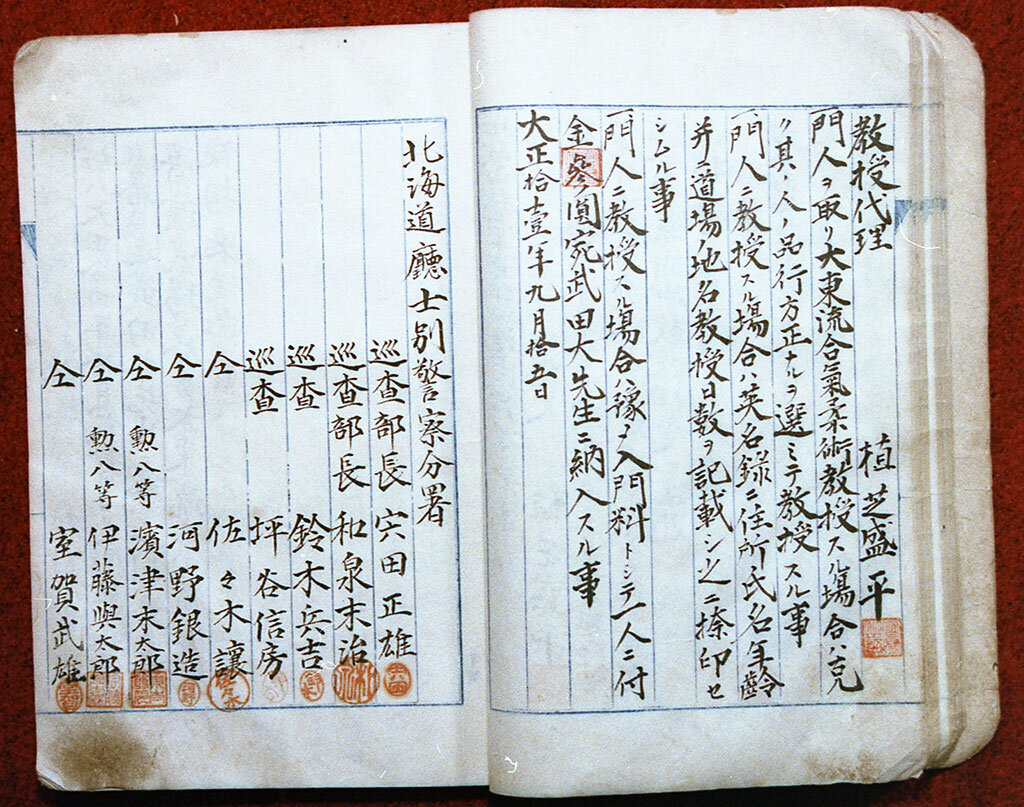 教授代理
植芝盛平
門人ヲ取リ大東流合氣柔術教授スル場合ハ克
ク其ノ人ノ品行方正ナルヲ選ミテ教授スル事
一門人ニ教授スル場合ハ英名録ニ住所氏名年齡
并ニ道場ノ地名教授日數ヲ記載シ之ニ捺印セ
シムル事
一門人ニ教授スル場合ハ豫メ入門料トシテ一人ニ付
金參圓宛武田大先生ニ納入スル事
大正拾壹年九月拾五日
北海道廳士別警察分署
巡査部長 宍田正雄
巡査部長 和泉末治
巡査 鈴木兵吉
巡査 坪谷信房
仝 佐々木讓
仝 河野銀造
仝 勲八等 濱津末太郎
仝 勲八等 伊藤與太郎
仝 室賀武雄